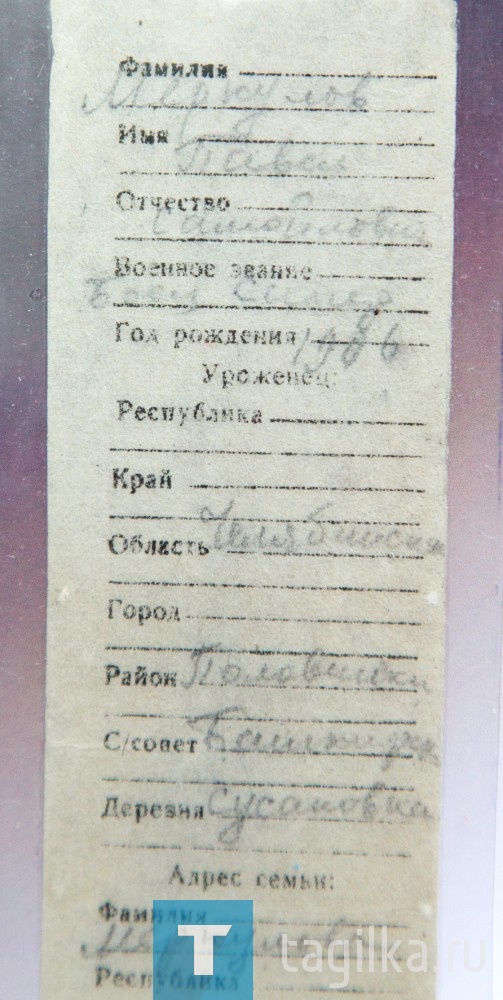 Фамилия
Меркулов
Имя
Павел
Отчество
Самойлович
Военное звание
Боец
Год рождения 1906
Уроженец:
Республика
Край
Область Челябинская
Город
Район Половинский
С/совет Башкирск
Деревня Сусановка
Адрес семьи:
Фамилия
Меркулова
Республика
T tagilka.ru